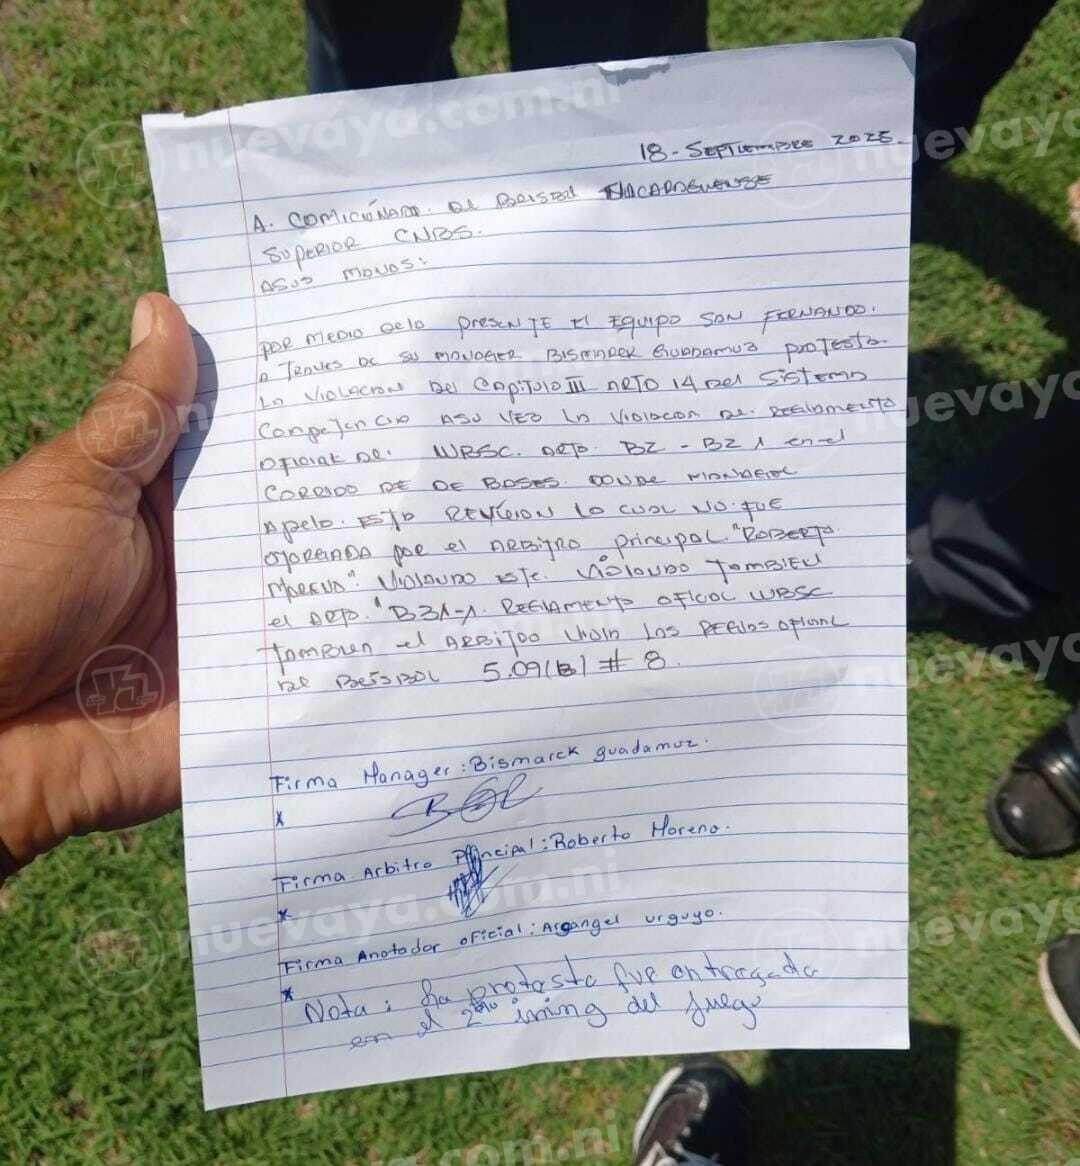 18. SEPTIEMBRE 2025.
A. COMICIÓNADO. DE BEISBOL NICARAGUENSE
SUPERIOR CNBS.
ASUS MANOS:
POR MEDIO DELO PRESENTE EL EQUIPO SAN FERNANDO.
A TRAVES DE SU MANAGER BISMARCK GUADAMUZ PROTESTA
LA VIOLACION DEL CAPITULO III ARTO 14 DEL SISTEMA
COMPETENCIA ASU VEZ LA VIOLACON DE. REGLAMENTO
OFICIAL DE. WBSC. ARTO. B2 - B2 1 en el
CORRIDO DE DE BASES. DONDE MANAGER
APELO. ESTO REVICION LO CUAL NO FUE
OTORGADA POR el ARBITRO PRINCIPAL. "ROBERTO
MORENO". VIOLANDO ESTE. VIOLANDO TAMBIEN
el ARTO. "B31-1. REGLAMENTO OFICIAL WBSC
TAMBIEN el ARBITRO VIOLA LAS REGLAS OFICIAL
DE BEISBOL 5.09(B) # 8.
Firma Manager: Bismarck guadamuz.
x
Firma Arbitro Principal: Roberto Moreno.
x
Firma Anotador oficial: Arcangel urguyo.
x
Nota: La protesta fue entregada
en el 2do ining del juego
nuevaya.com.ni